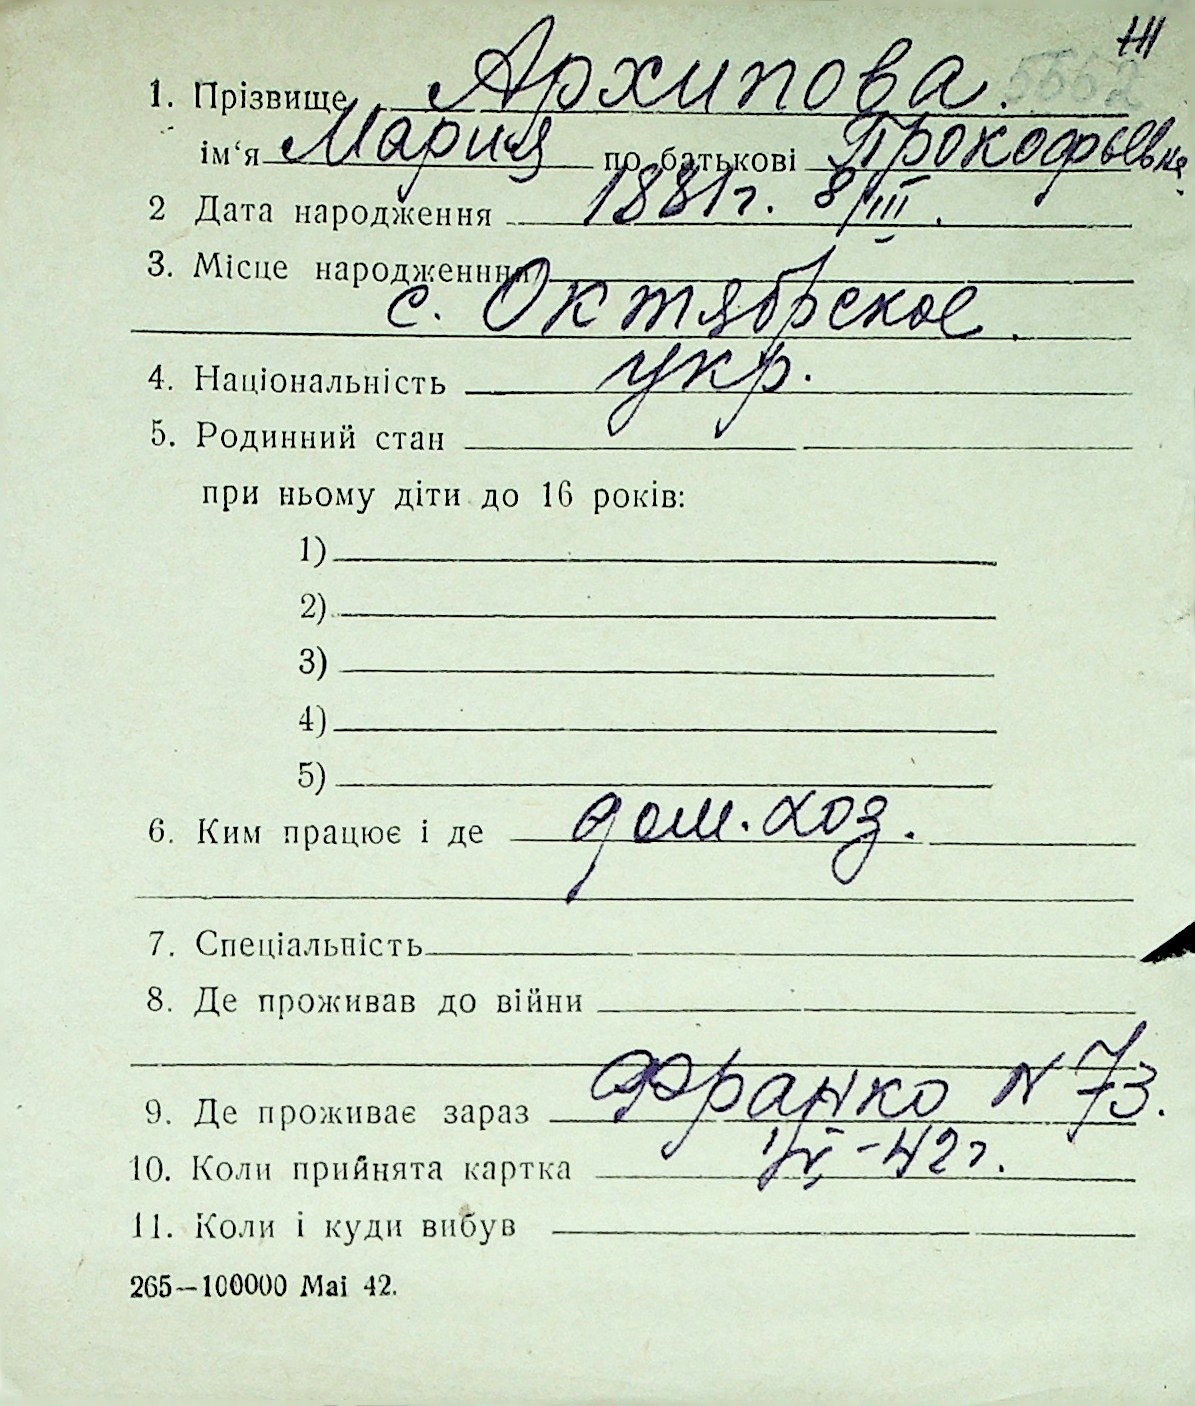 5552
1. Прізвище Архипова.
ім‘я Мария по батькові Прокофьевна
2 Дата народження 1881г. 8/III.
3. Місце народженння
с. Октябрское.
4. Національність укр.
5. Родинний стан
при ньому діти до 16 років:
1)
2)
3)
4)
5)
6. Ким працює і де дом. хоз.
7. Спеціальність
8. Де проживав до війни
9. Де проживає зараз Франко N 73.
10. Коли прийнята картка -42 г.
11. Коли і куди вибув
265—100000 Mai 42.